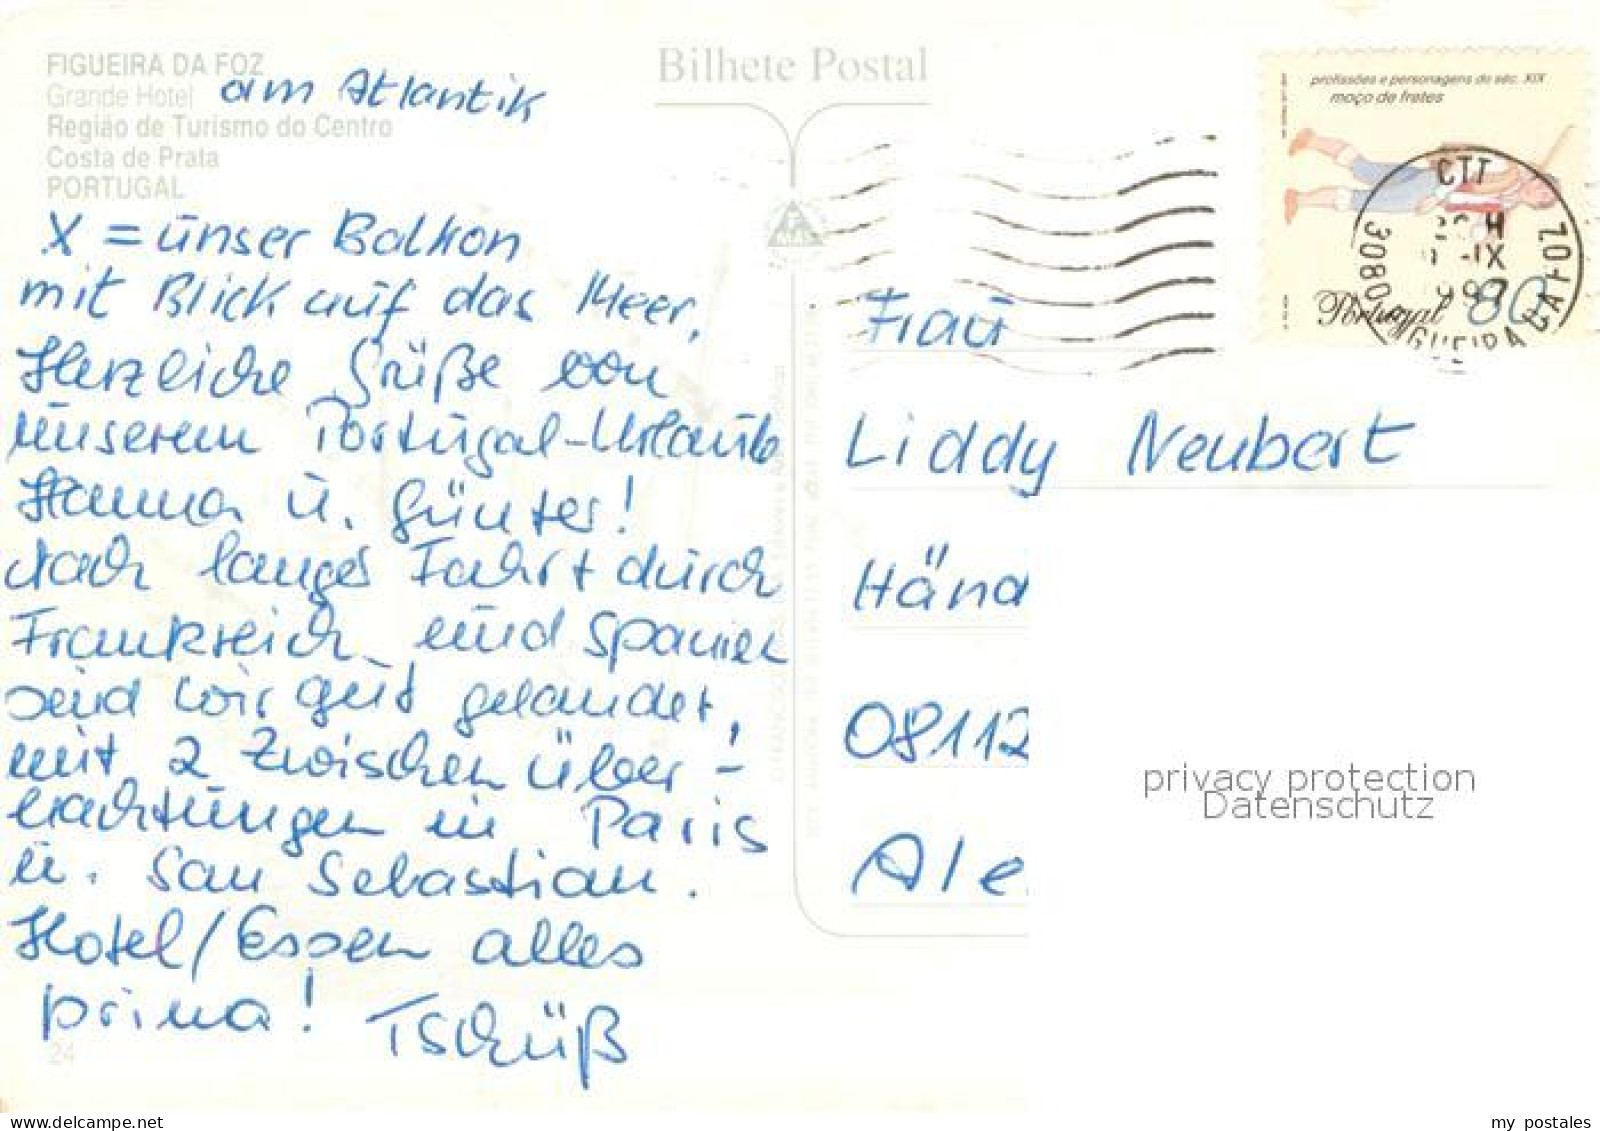 FIGUEIRA DA FOZ
Grande Hotel am Atlantik
Região de Turismo do Centro
Costa de Prata
PORTUGAL
X = unser Balkon
mit Blick auf das Meer,
Herzliche Grüße von
unserem Portugal-Urlaub
Hanna u. Günter!
Nach langer Fahrt durch
Frankreich und Spanien
sind wir gut gelandet,
mit 2 Zwischenüber-
nachtungen in Paris
u. San Sebastian.
Hotel/Essen alles
prima! Tschüß
24
Bilhete Postal
profissões e personagens do séc. XIX
moço de fretes
Portugal 80
CTT
3080
IX
FIGUEIRA DA FOZ
Frau
Liddy Neubert
Händ
08112
Ale
privacy protection
Datenschutz
delcampe.net
my_postales